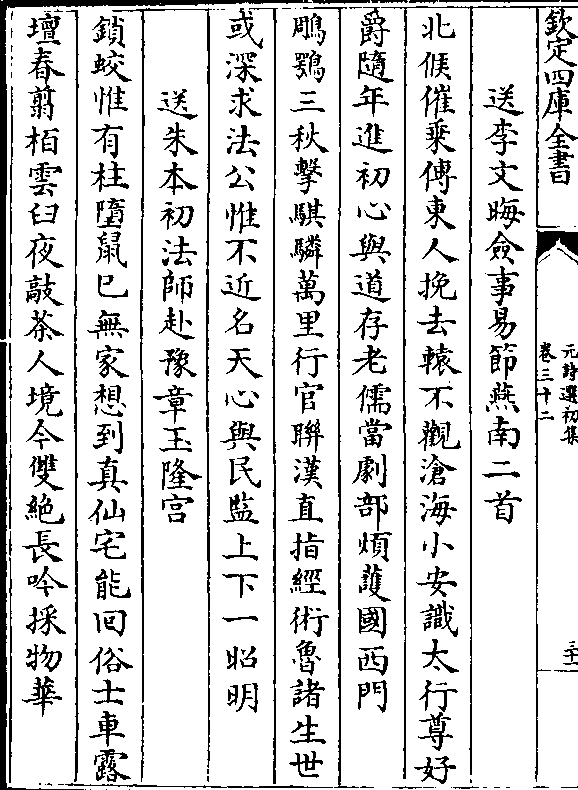 欽定四庫全書
元詩選初集
卷三十二
送李文晦僉事易節燕南二首
北候催乘傳東人挽去轅不觀滄海小安識太行尊好
爵隨年進初心與道存老儒當劇部煩護國西門
鵰鶚三秋擊騏驎萬里行官聯漢直指經術魯諸生世
或深求法公惟不近名天心與民監上下一昭明
送朱本初法師赴豫章玉隆宫
鎖蛟惟有柱墮鼠已無家想到真仙宅能回俗士車露
壇春翦栢雲臼夜敲茶人境今雙絶長吟採物華